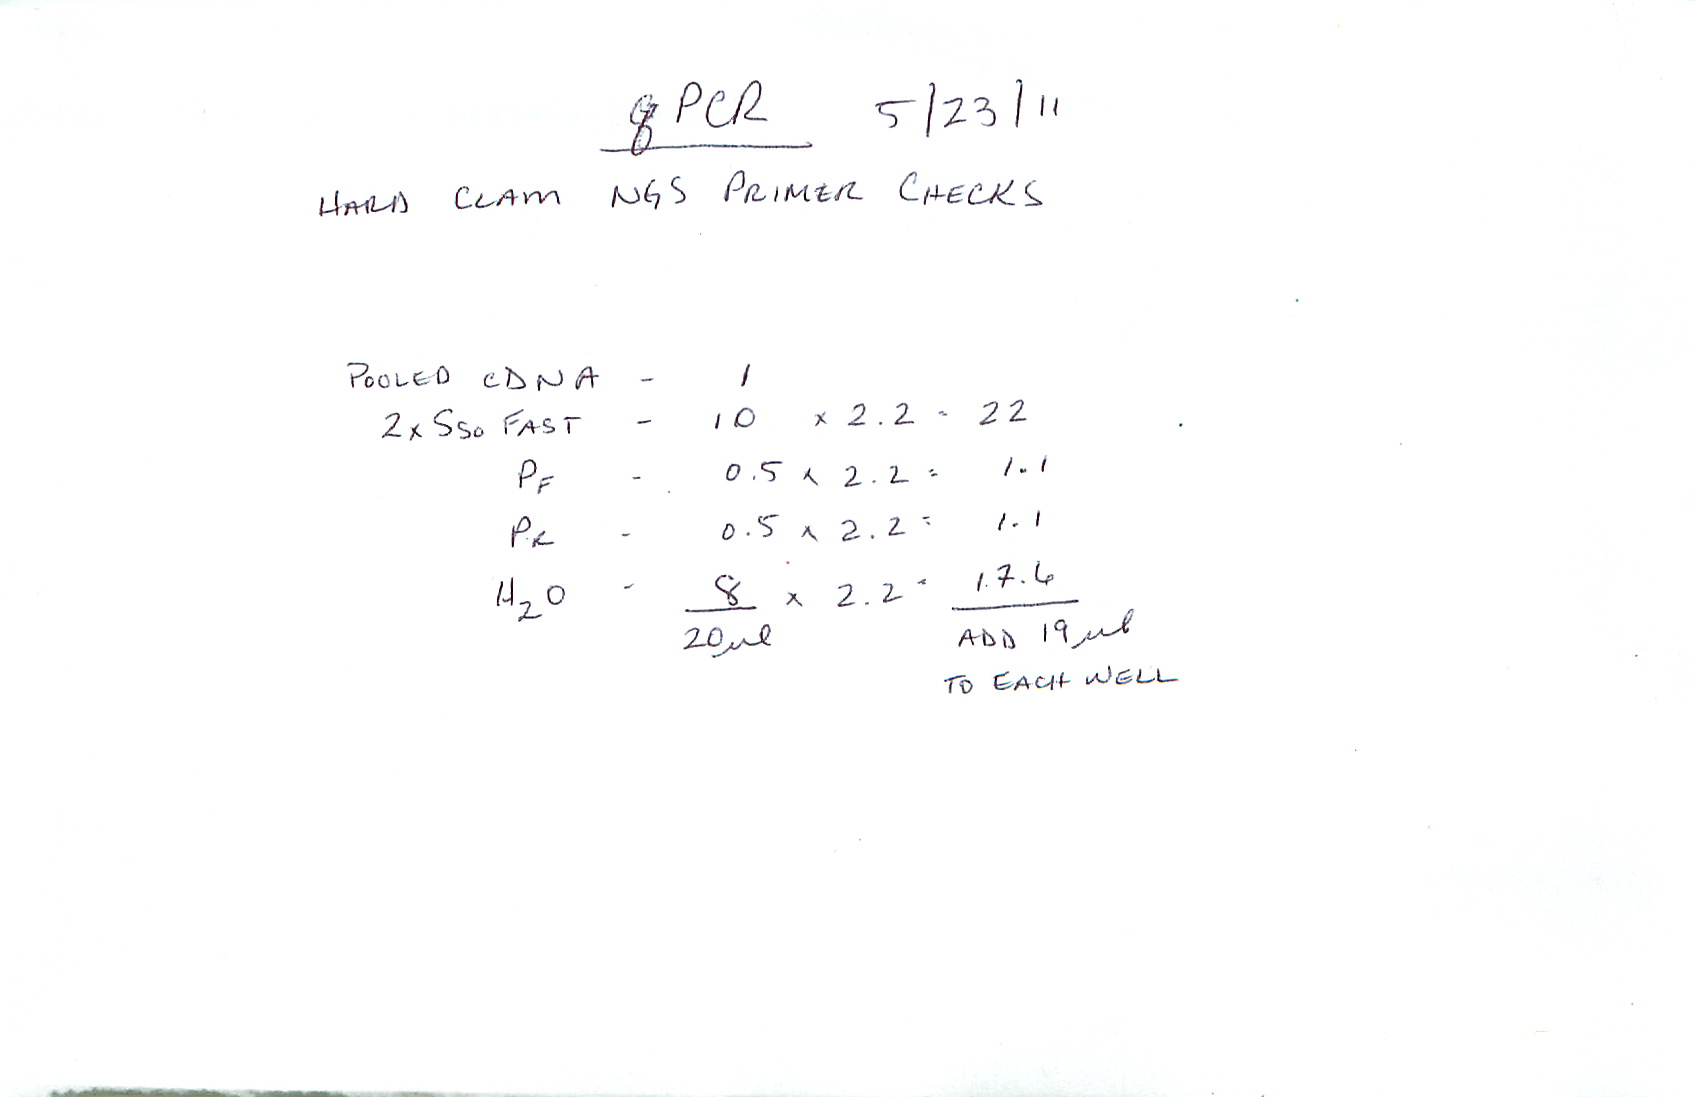 qPCR 5/23/11
HARD CLAM NGS PRIMER CHECKS
POOLED cDNA - 1
2x Sso FAST - 10 x 2.2 = 22
PF - 0.5 x 2.2 = 1.1
PR - 0.5 x 2.2 = 1.1
H2O - 8 x 2.2 = 17.6
20µl ADD 19µl
TO EACH WELL